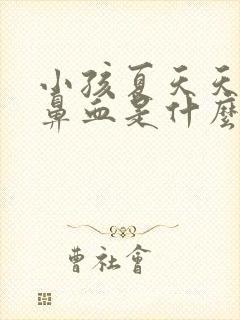 小孩夏天天
鼻血是什麼
曹社會